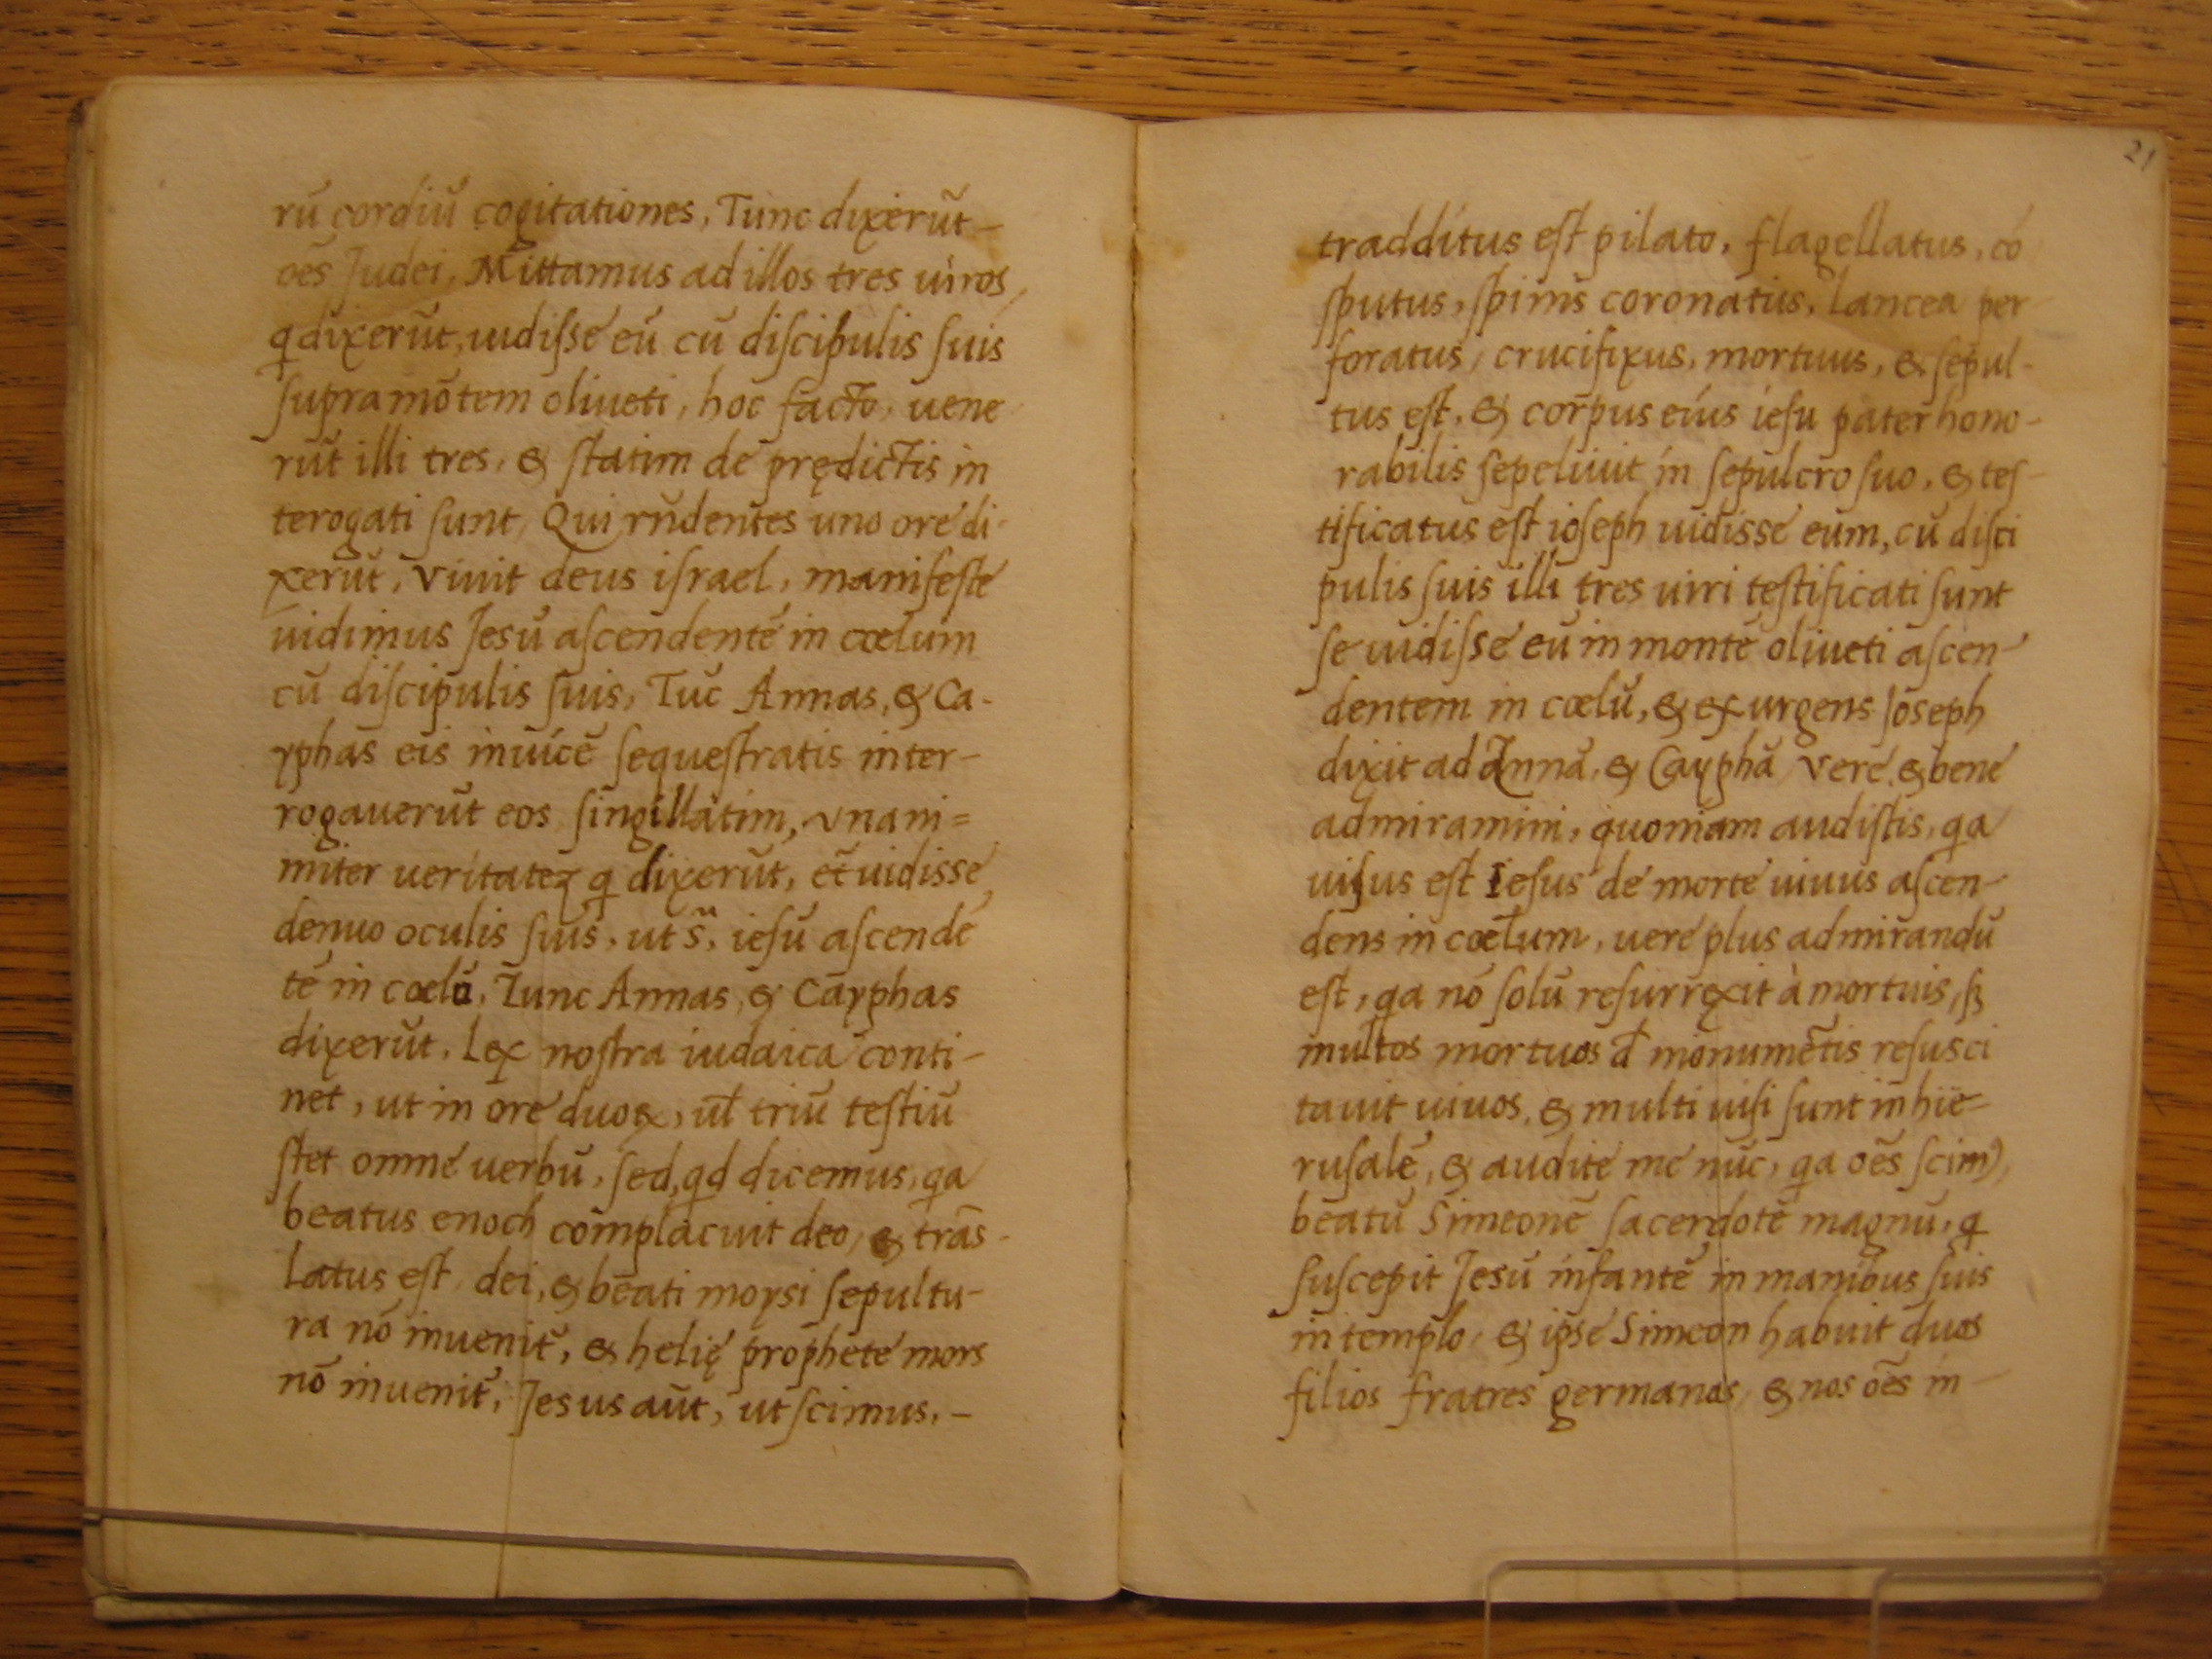 rũ cordiũ cogitationes, Tunc dixerũt-
oẽs Judei, Mittamus ad illos tres uiros,
q̃ dixerũt, uidisse eũ cũ discipulis suis
supra mõtem oliueti, hoc facto, uene
rũt illi tres, & statim de prędictis in
terogati sunt, Qui rñdentes uno ore di-
xerũt, viuit deus israel, manifeste
uidimus Jesũ ascendentẽ in cœlum
cũ discipulis suis, Tũc Annas, & Ca-
yphas eis inuicẽ sequestratis inter-
rogauerũt eos singillatim, vnani=
miter ueritateʒ q̃ dixerũt, et̃ uidisse
denuo oculis suis, ut s̃, iesũ ascendẽ
tẽ in cœlũ, Tunc Annas, & Cayphas
dixerũt, Lex nostra iudaica conti-
net, ut in ore duoꝝ, ul̃ triũ testiũ
stet omne uerbũ, sed, qd dicemus, qa
beatus enoch complacuit deo, & trãs-
latus est dei, & beati moysi sepultu-
ra nõ inuenit̃, & helię prophete mors
nõ inuenit̃, Jesus aũt, ut scimus, -
21
tradditus est pilato, flagellatus, cõ
sputus, spinis coronatus, lancea per-
foratus, crucifixus, mortuus, & sepul-
tus est, & corpus eius iesu pater hono-
rabilis sepeliuit in sepulcro suo, & tes-
tificatus est ioseph uidisse eum, cũ disci
pulis suis illi tres uiri testificati sunt
se uidisse eũ in monte oliueti ascen-
dentem in cœlũ, & exurgens Joseph
dixit ad Annã, & Cayphã, vere, & bene
admiramini, quoniam audistis, qa
uisus est Iesus de morte uiuus ascen-
dens in cœlum, uere plus admirandũ
est, qa nõ solũ resurrexit à mortuis, sꝫ
multos mortuos d̃ monumẽtis resusci
tauit uiuos, & multi uisi sunt in hie-
rusalẽ, & audite me nũc, qa oẽs scimꝰ,
beatũ Simeonẽ sacerdotẽ magnũ, q̃
suscepit Jesũ infantẽ in manibus suis
in templo, & ipse Simeon habuit duos
filios fratres germanos, & nos oẽs in-